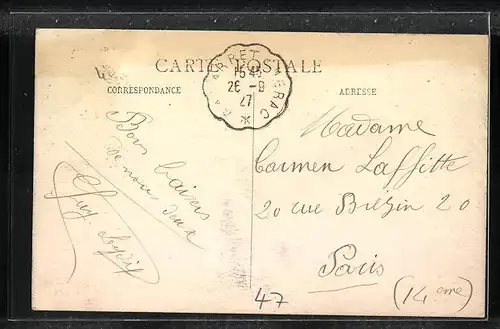 CARTE POSTALE
CORRESPONDANCE
ADRESSE
GABARRET NERAC
1545
26 -9
27
Bons baisers
de nous deux
Madame
Carmen Laffitte
20 rue Brezin 20
Paris
(14eme)
47